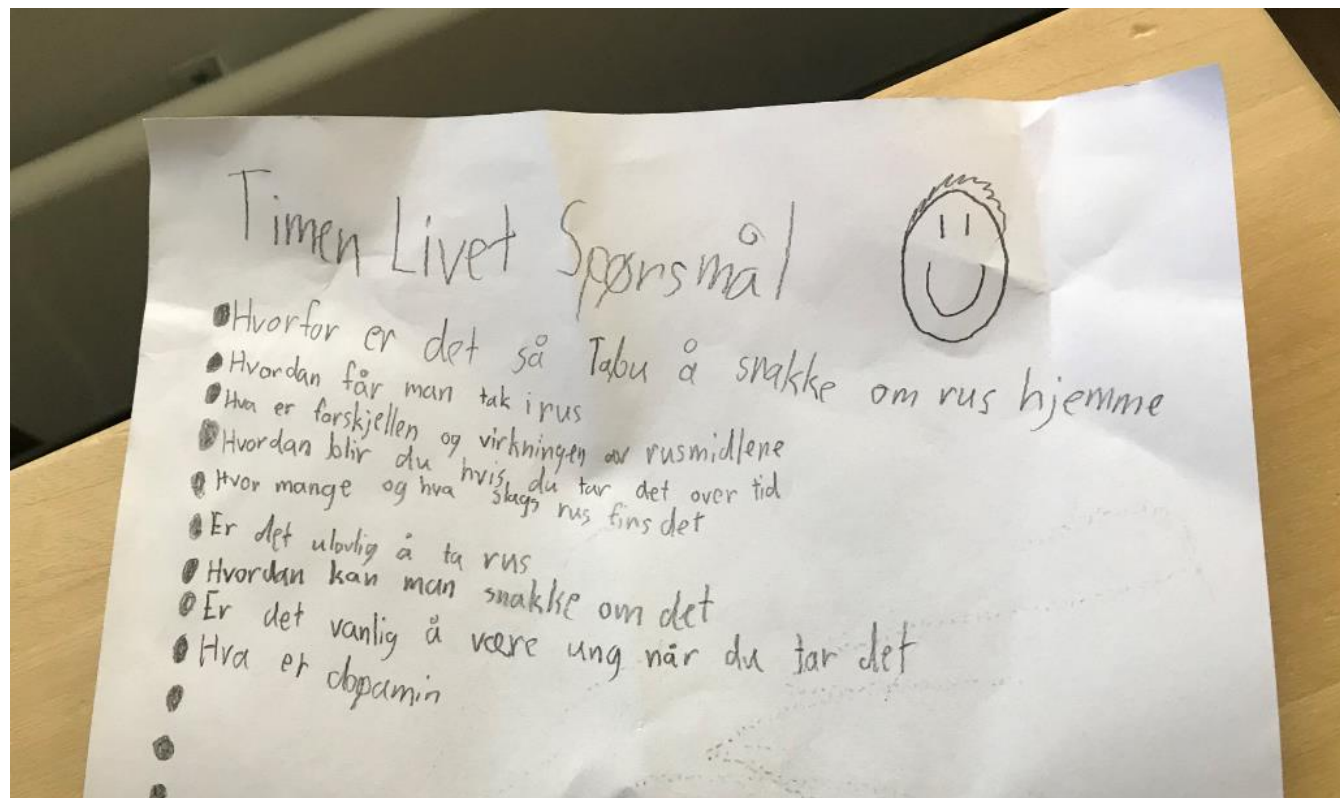 Timen Livet Spørsmål
• Hvorfor er det så Tabu å snakke om rus hjemme
• Hvordan får man tak i rus
• Hva er forskjellen og virkningen av rusmidlene
• Hvordan blir du hvis du tar det over tid
• Hvor mange og hva slags rus fins det
• Er det ulovlig å ta rus
• Hvordan kan man snakke om det
• Er det vanlig å være ung når du tar det
• Hva er dopamin
•
•
•